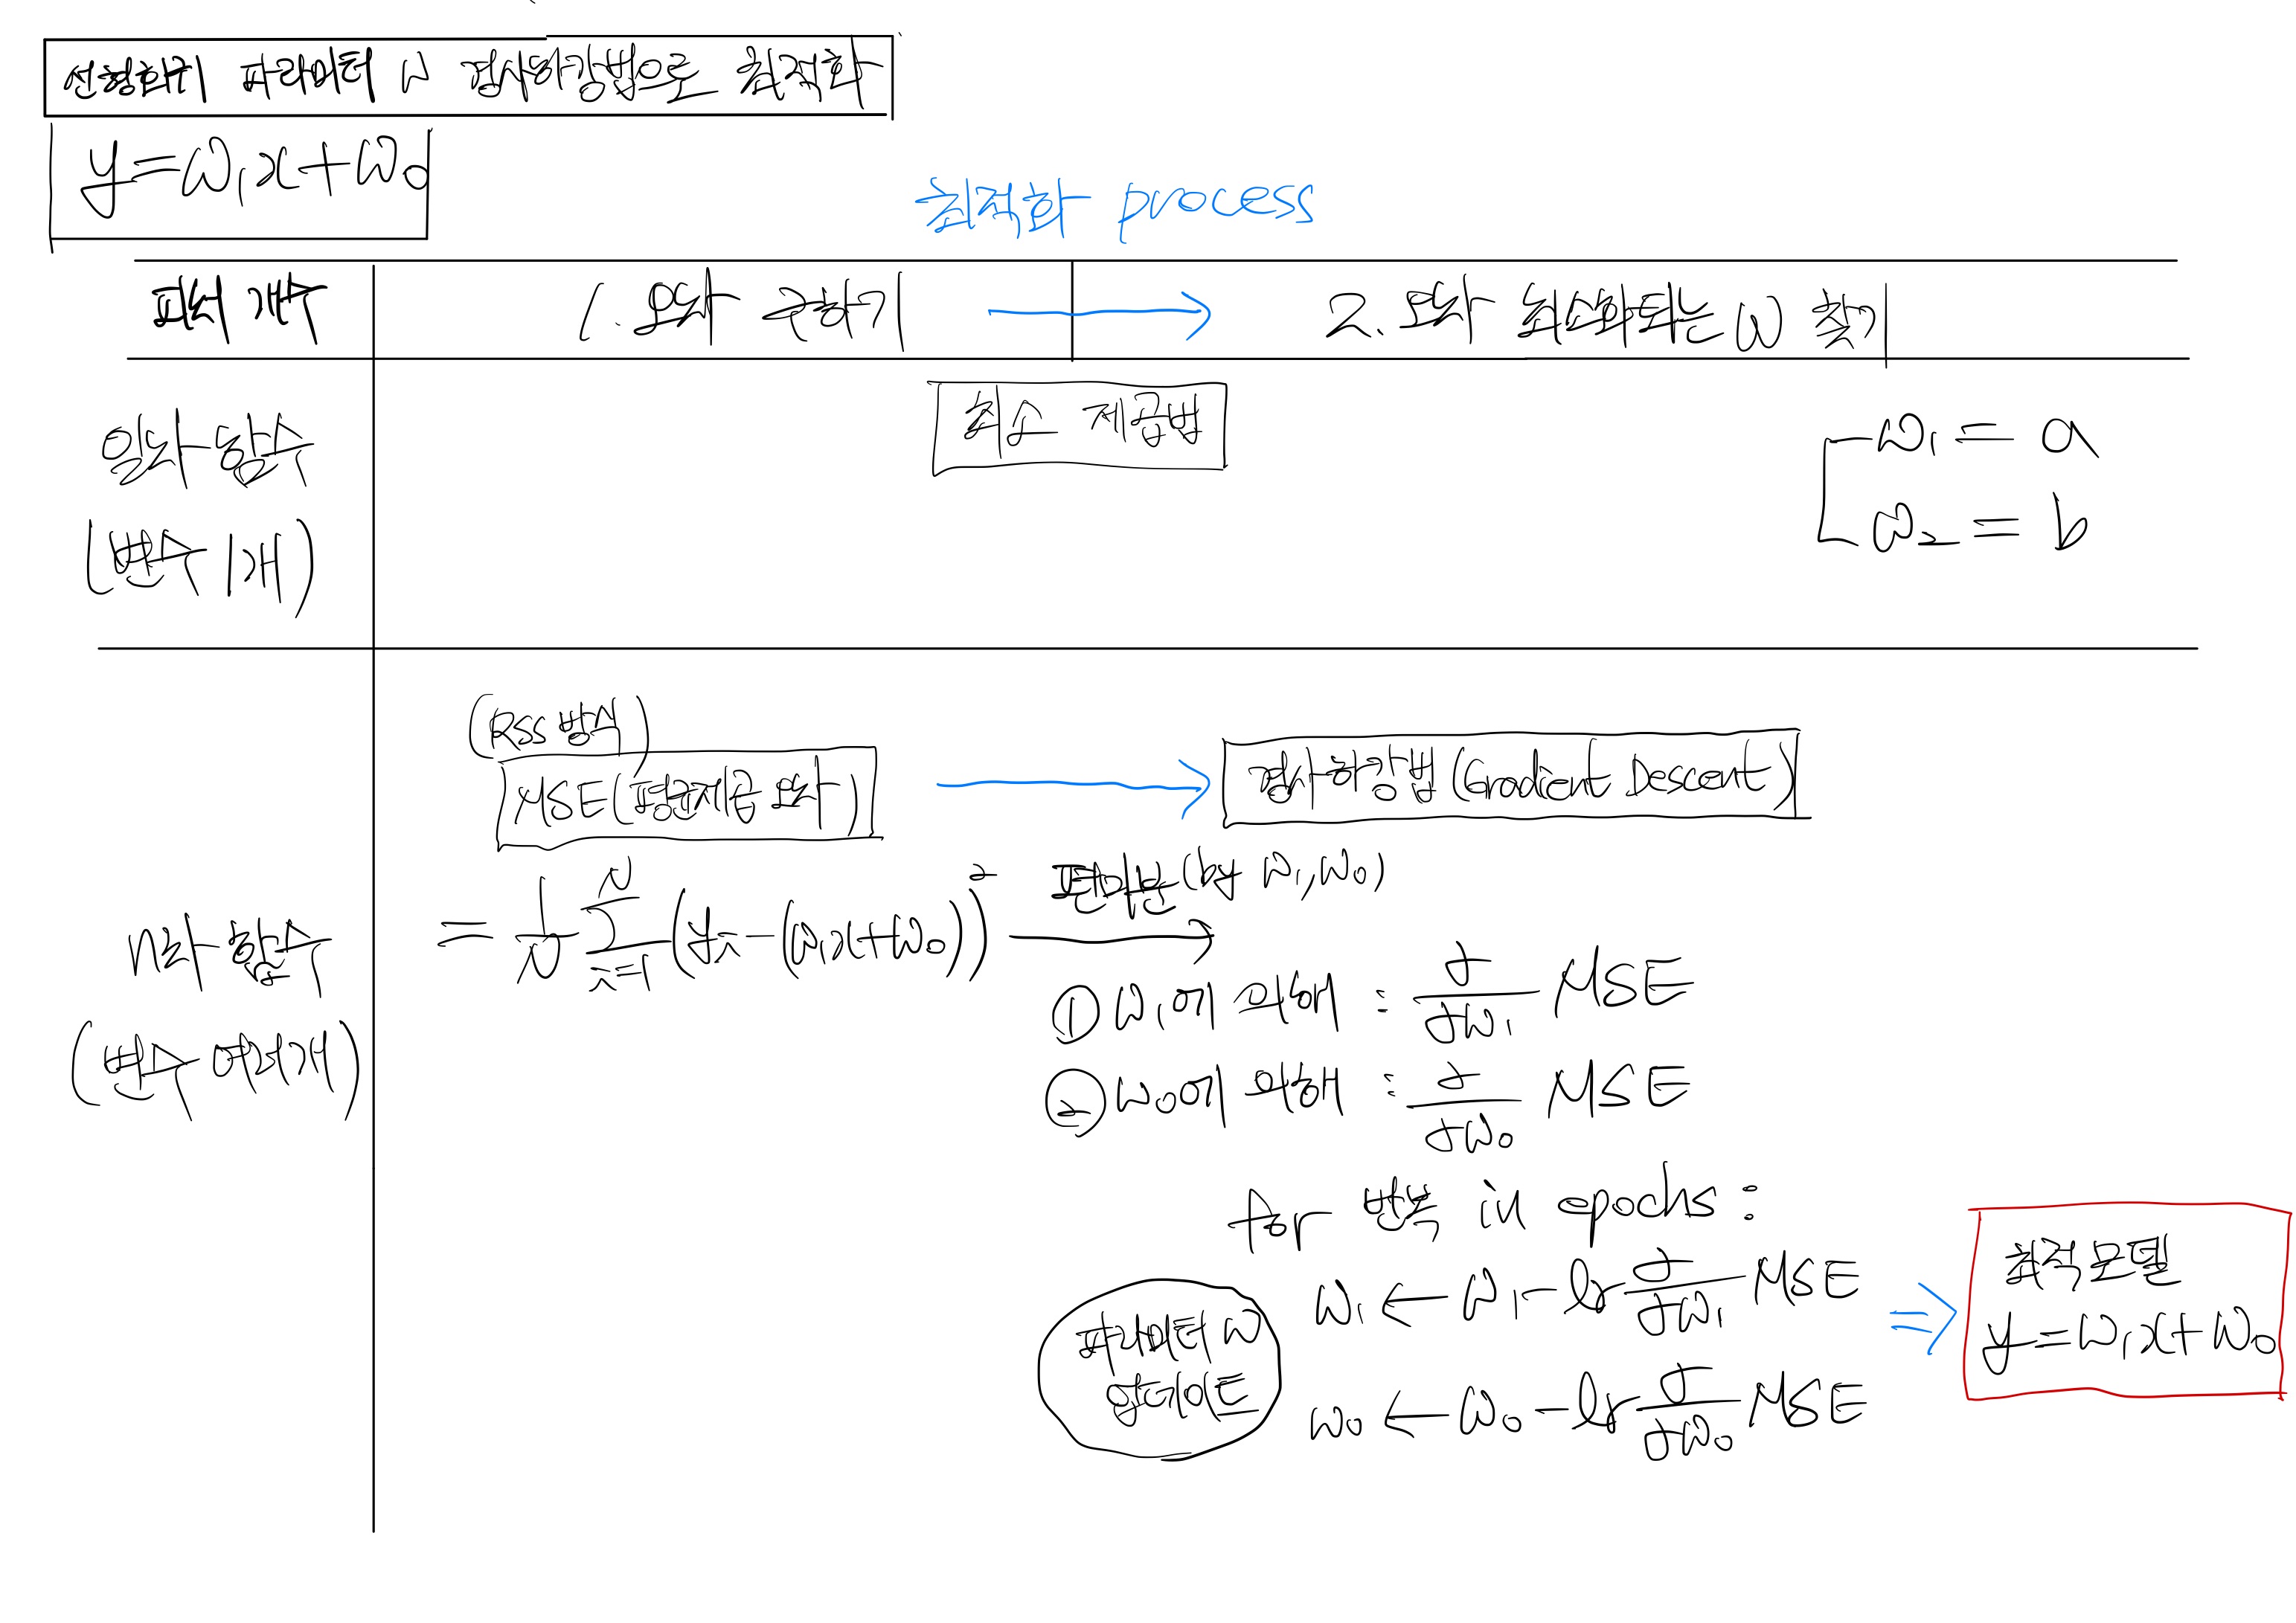 선형회귀 파라미터 w 경사하강법으로 최적화
y=w₁x+w₀
최적화 process
피처 개수
1. 오차 구하기
2. 오차 최소화되는 w 찾기
일차 함수
(변수 1개)
최소 제곱법
w₁ = a
w₂ = b
n차 함수
(변수 여러개)
(RSS 방식)
MSE(평균제곱 오차)
경사하강법(Gradient Descent)
= 1/N Σ_{i=1}^{N} (yᵢ-(w₁x+w₀))²
편미분(by w₁,w₀)
① w₁에 의해 : ∂/∂w₁ MSE
② w₀에 의해 : ∂/∂w₀ MSE
for 반복 in epochs:
파라미터 w
업데이트
w₁ ← w₁ - lr ∂/∂w₁ MSE
w₀ ← w₀ - lr ∂/∂w₀ MSE
최적모델
y=w₁x+w₀